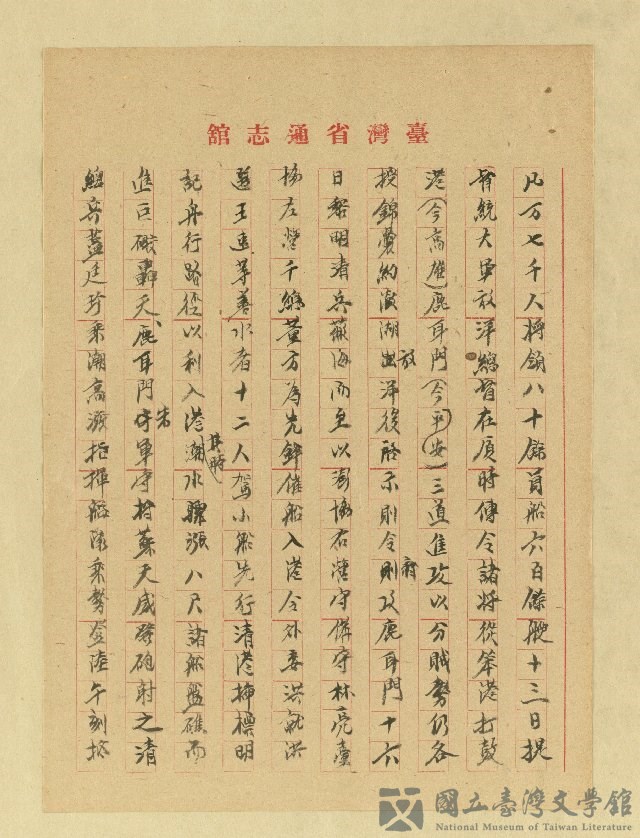 臺灣省通志館
凡万七千人將領八十餘員船六百餘艘十三日提
督統大軍放洋總督在廈時傳令諸將從笨港打鼓
港(今高雄)鹿耳門(今平安)三道進攻以分賊勢仍各
授錦囊約澎湖放出洋後啓示則令剛攻鹿耳門十六
日黎明清兵蔽海而至以澎協右營守備守林亮臺
協左營千總董方為先鋒催船入港令外委洪就洪
選王進等善水者十二人駕小船先行清港插標明
記舟行路徑以利入港其時潮水驟漲八尺諸船盤礁而
進巨礮轟天鹿耳門朱守軍守將蘇天威發砲射之清
總兵藍廷珍乘潮高漲指揮艦隊乘勢登陸午刻於
國立臺灣文學館
National Museum of Taiwan Literature